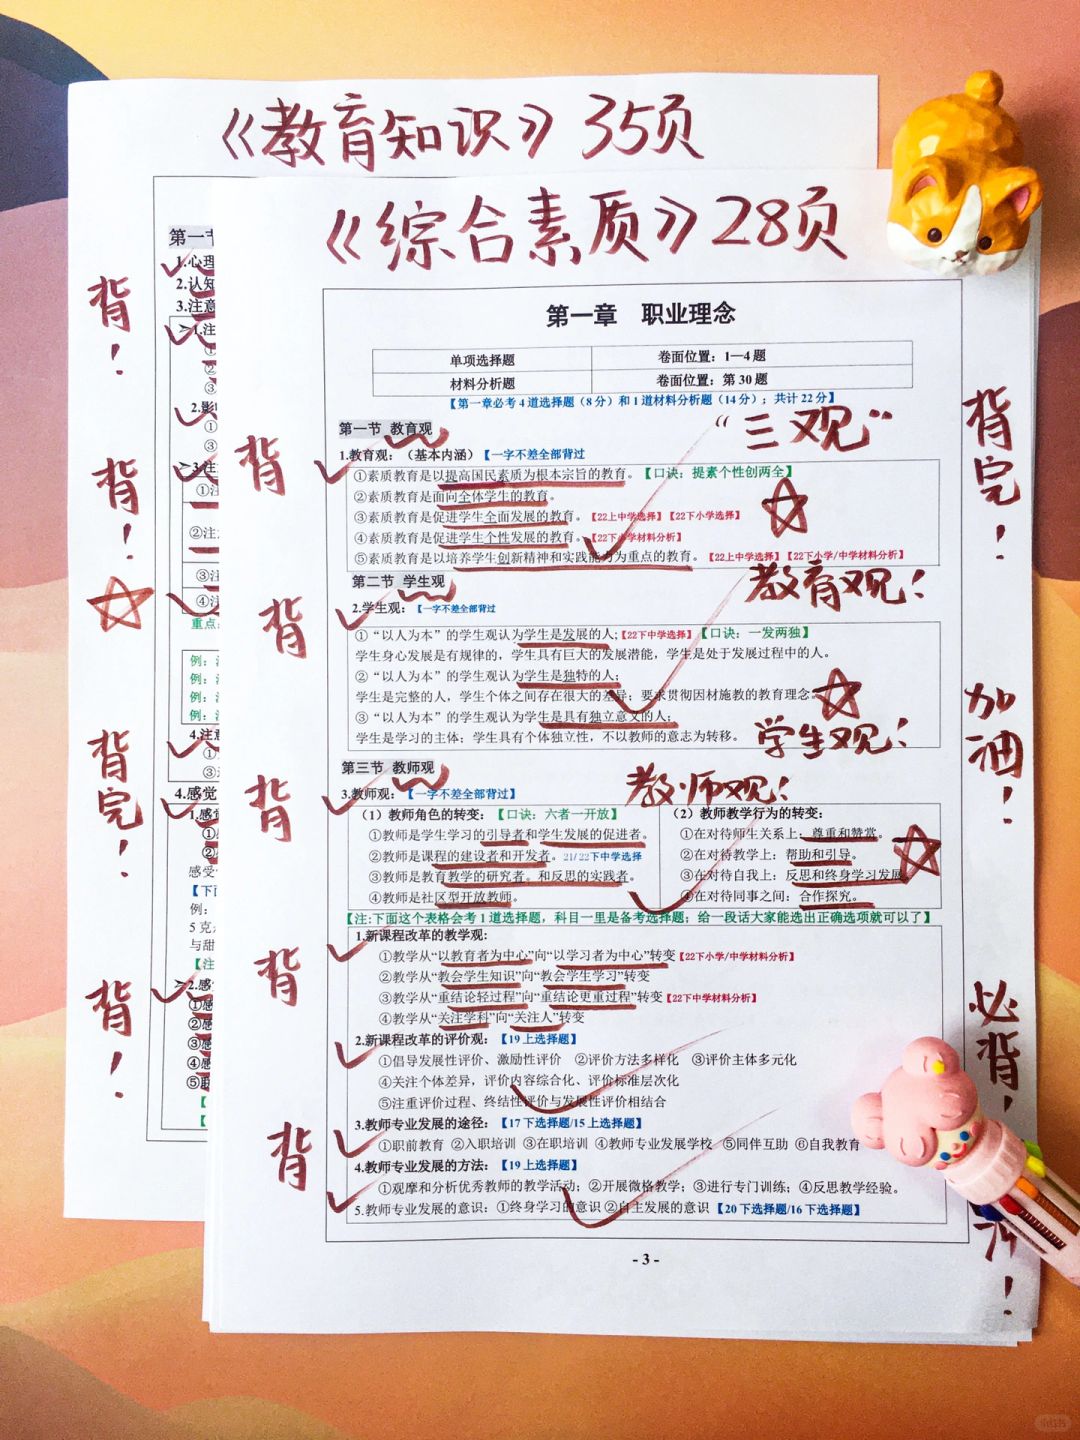 《教育知识》35页
《综合素质》28页
第一章 职业理念
单项选择题 卷面位置：1—4题
材料分析题 卷面位置：第30题
【第一章必考4道选择题（8分）和1道材料分析题（14分）；共计22分】
第一节 教育观
“三观”
1.教育观：（基本内涵）【一字不差全部背过
①素质教育是以提高国民素质为根本宗旨的教育。【口诀：提素个性创两全】
②素质教育是面向全体学生的教育。
③素质教育是促进学生全面发展的教育。【22上中学选择】【22下小学选择】
④素质教育是促进学生个性发展的教育。【22下小学材料分析】
⑤素质教育是以培养学生创新精神和实践能力为重点的教育。【22上中学选择】【22下小学/中学材料分析】
第二节 学生观
教育观！
2.学生观：【一字不差全部背过
①“以人为本”的学生观认为学生是发展的人；【22下中学选择】【口诀：一发两独】
学生身心发展是有规律的，学生具有巨大的发展潜能，学生是处于发展过程中的人。
②“以人为本”的学生观认为学生是独特的人；
学生是完整的人，学生个体之间存在很大的差异；要求贯彻因材施教的教育理念
③“以人为本”的学生观认为学生是具有独立意义的人；
学生是学习的主体；学生具有个体独立性，不以教师的意志为转移。
学生观！
第三节 教师观
教师观！
3.教师观：【一字不差全部背过】
（1）教师角色的转变：【口诀：六者一开放】
①教师是学生学习的引导者和学生发展的促进者。
②教师是课程的建设者和开发者。21/22下中学选择
③教师是教育教学的研究者。和反思的实践者。
④教师是社区型开放教师。
（2）教师教学行为的转变：
①在对待师生关系上：尊重和赞赏。
②在对待教学上：帮助和引导。
③在对待自我上：反思和终身学习发展
④在对待同事之间：合作探究。
【注:下面这个表格会考1道选择题，科目一里是备考选择题；给一段话大家能选出正确选项就可以了】
1.新课程改革的教学观:
①教学从“以教育者为中心”向“以学习者为中心”转变【22下小学/中学材料分析】
②教学从“教会学生知识”向“教会学生学习”转变
③教学从“重结论轻过程”向“重结论更重过程”转变【22下中学材料分析】
④教学从“关注学科”向“关注人”转变
2.新课程改革的评价观:【19上选择题】
①倡导发展性评价、激励性评价 ②评价方法多样化 ③评价主体多元化
④关注个体差异，评价内容综合化、评价标准层次化
⑤注重评价过程、终结性评价与发展性评价相结合
3.教师专业发展的途径：【17下选择题/15上选择题】
①职前教育 ②入职培训 ③在职培训 ④教师专业发展学校 ⑤同伴互助 ⑥自我教育
4.教师专业发展的方法：【19上选择题】
①观摩和分析优秀教师的教学活动；②开展微格教学；③进行专门训练；④反思教学经验。
5.教师专业发展的意识：①终身学习的意识 ②自主发展的意识【20下选择题/16下选择题】
- 3 -
背
背
背
背
背
背完！
加油！
必背！
背！
背！
背完！
背！
第一节
1.心理
2.认知
3.注意
1.注
2.影
3.注
①注
②注
③注
④注
重点
例：
例：
例：
例：
4.注意
4.感觉
1.感觉
感受
【下面
例：
5克
与甜
【注
2.感
①感
②感
③感
④感